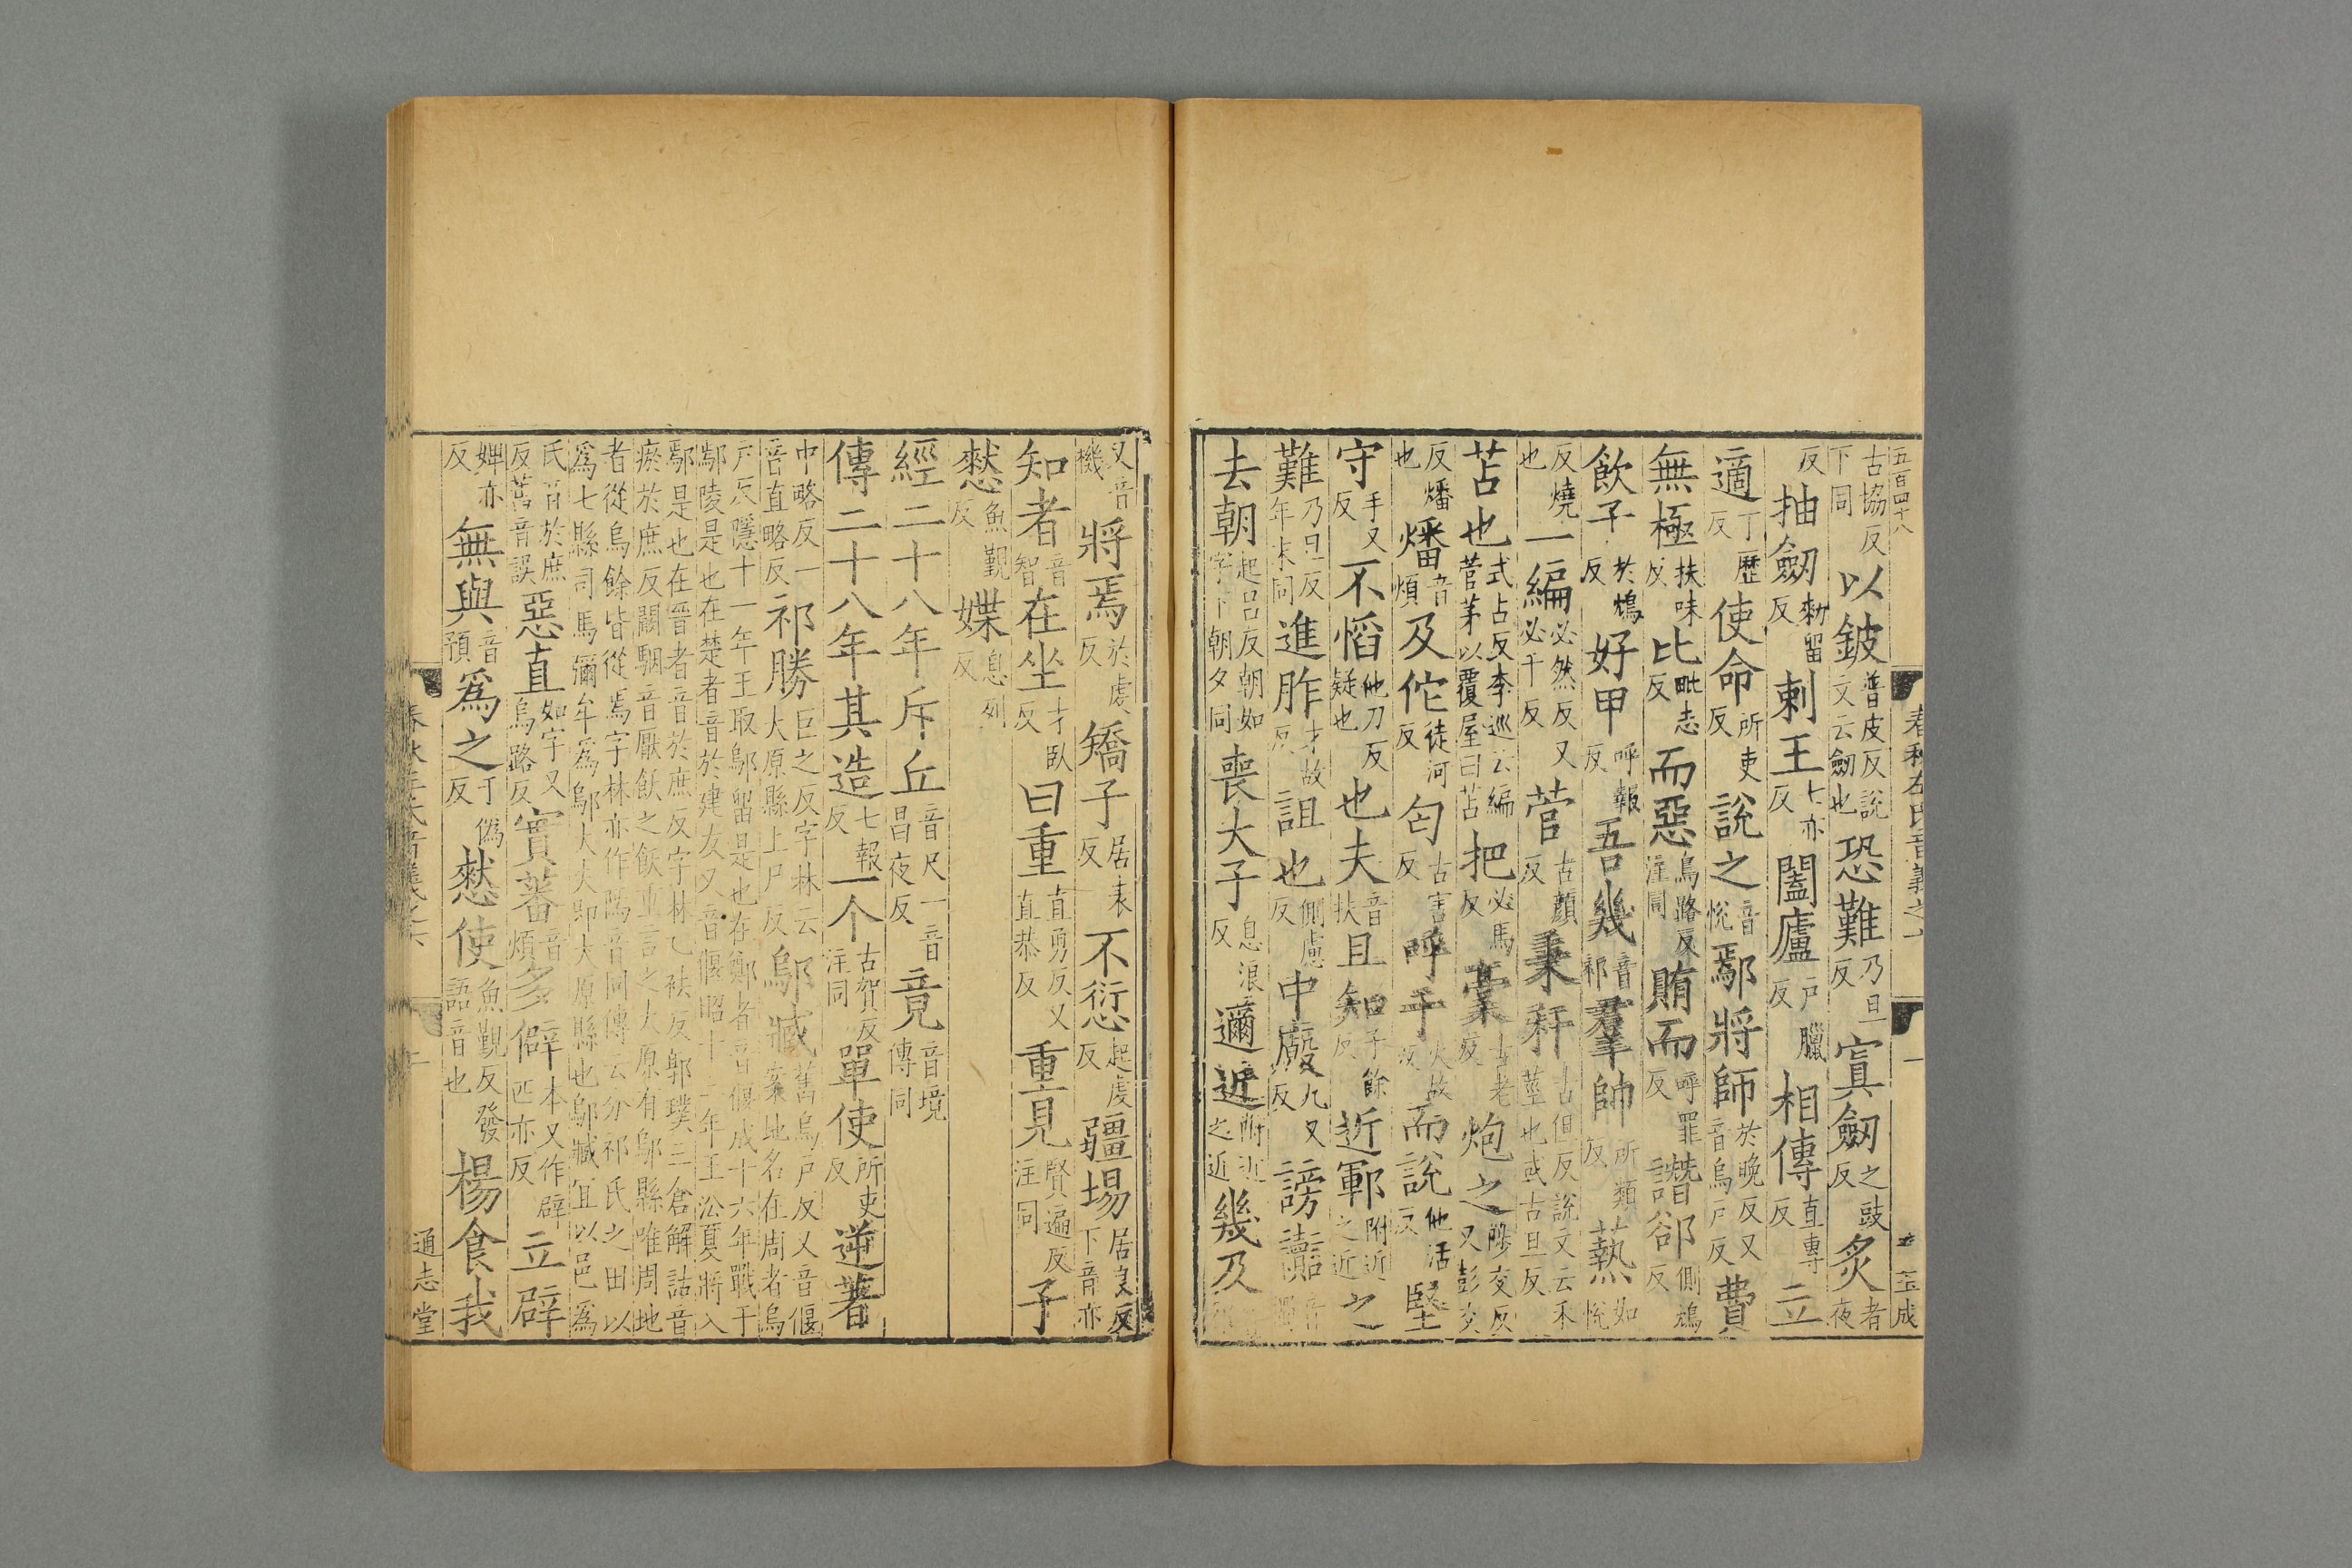 五百四十八
春秋左氏音義之
古協反下同以鈹普皮反說文云劒也恐難乃旦反寘劒之豉反炙者夜
反抽劒勑留反刺王七亦反闔廬戶臘反相傳直專反立
適丁歷反使命所吏反說之音悅鄢將師於晚反又音烏戶反費
無極扶味反比毗志反而惡烏路反注同賄而呼罪反譖郤側鴆反
飲子於鴆反好甲呼報反吾幾音祁羣帥所類反爇如悅
反燒也一編必然反又必干反菅古顏反秉秆古但反說文云禾莖也或古旦反
苫也式占反李巡云編菅茅以覆屋曰苫把必馬反槀古老反炮之䧂交反又彭交
反燔也燔音煩及佗徒河反匄古害反呼手火故反而說他活反豎
守手又反不慆他刀反疑也也夫音扶且知子餘反近鄆附近之近之
難乃旦反年末同進胙才故反詛也側慮反中廄九又反謗讟音
去朝起呂反朝如字下朝夕同喪大子息浪反邇近附近之近幾及
又音機將焉於虔反矯子居表反不愆起虔反疆埸居良反下音亦
知者音智在坐才臥反曰重直勇反又直恭反重見賢遍反注同子
憖魚覲反媟息列反
經二十八年斥丘音尺一音昌夜反竟音境傳同
傳二十八年其造七報反一个古賀反注同單使所吏反逆著
中略反一音直略反祁勝巨之反字林云大原縣上尸反鄔臧舊烏戶反又音偃案地名在周者烏
戶反隱十一年王取鄔留是也在鄭者音偃成十六年戰于
鄢陵是也在楚者音於建反又音偃昭十三年王㳂夏將入
鄢是也在晉者音於庶反字林乙袪反郭璞三倉解詁音
瘀於庶反闞駰音厭飫之飫重言之大原有鄔縣唯周地
者從烏餘皆從焉字林亦作隖音同傳云分祁氏之田以
爲七縣司馬彌牟爲鄔大夫即大原縣也鄔臧宜以邑爲
氏音於庶反舊音誤惡直如字又烏路反實蕃音煩多僻本又作辟匹亦反立辟
婢亦反無與音預爲之于僞反憖使魚覲反發語音也楊食我
通志堂